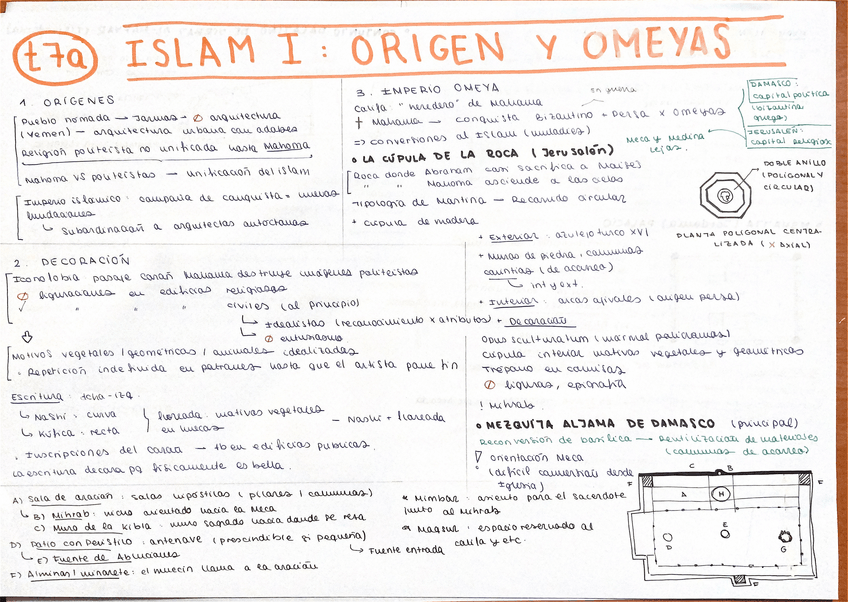 t7a
ISLAM I: ORIGEN Y OMEYAS
1. ORÍGENES
Pueblo nómada → Jaimas → Ø arquitectura
(Yemen) — arquitectura urbana con adobes
Religión politeísta no unificada hasta Mahoma
Mahoma vs politeístas — unificación del islam
Imperio islámico: campaña de conquista = nuevas
fundaciones
↳ Subordinación a arquitectos autóctonos
2. DECORACIÓN
Iconofobia pasaje Corán Mahoma destruye imágenes politeístas
Ø figuraciones en edificios religiosos
✓ " " " civiles (al principio)
↳ Idealistas (reconocimiento x atributos) + Decoración
↳ Ø
Motivos vegetales / geométricos / animales idealizados
· Repetición indefinida en patrones hasta que el artista pone fin
Escritura: dcha - izq.
↳ Nashi: curva
↳ Kúfica: recta
floreada: motivos vegetales
en huecos
— Nashi + floreada
· Inscripciones del Corán → tb en edificios públicos.
La escritura decora pq físicamente es bella.
A) Sala de oración: salas hipóstilas (pilares / columnas)
↳ B) Mihrab: nicho orientado hacia la Meca
C) Muro de la kibla: muro sagrado hacia donde se reza
D) Patio con peristilo: antenave (prescindible si pequeña)
↳ E) Fuente de Abluciones
↳ Fuente entrada
F) Alminar / minarete: el muecín llama a la oración
3. IMPERIO OMEYA
Califa: "heredero" de Mahoma
en guerra
† Mahoma → conquista Bizantino + Persa x Omeyas
⇒ conversiones al Islam (muladíes)
DAMASCO:
capital política
(bizantina
griega)
JERUSALÉN:
capital religiosa
Meca y Medina
lejos.
• LA CÚPULA DE LA ROCA (Jerusalén)
Roca donde Abraham casi sacrifica a
" " Mahoma asciende a los cielos
Tipología de Martiria — Recorrido circular
+ cúpula de madera
DOBLE ANILLO
(POLIGONAL Y
CIRCULAR)
PLANTA POLIGONAL CENTRA-
LIZADA (X AXIAL)
+ Exterior: azulejo turco XVI
+ Muros de piedra, columnas
corintias (de acarreo)
↳ int y ext.
+ Interior: arcos ojivales (origen persa)
Opus sculturatum (mármol polícromas)
Cúpula interior motivos vegetales y geométricos
Trépano en cornisas
Ø figuras, epigrafía
! Mihrab.
• MEZQUITA ALJAMA DE DAMASCO (principal)
Reconversión de basílica → Reutilización de materiales
(columnas de acarreo)
orientación Meca
(difícil convertirla desde
Iglesia)
* Mimbar: asiento para el sacerdote
junto al Mihrab
* Maqsur: espacio reservado al
califa y etc.
C B
F F
A H
D E G
F